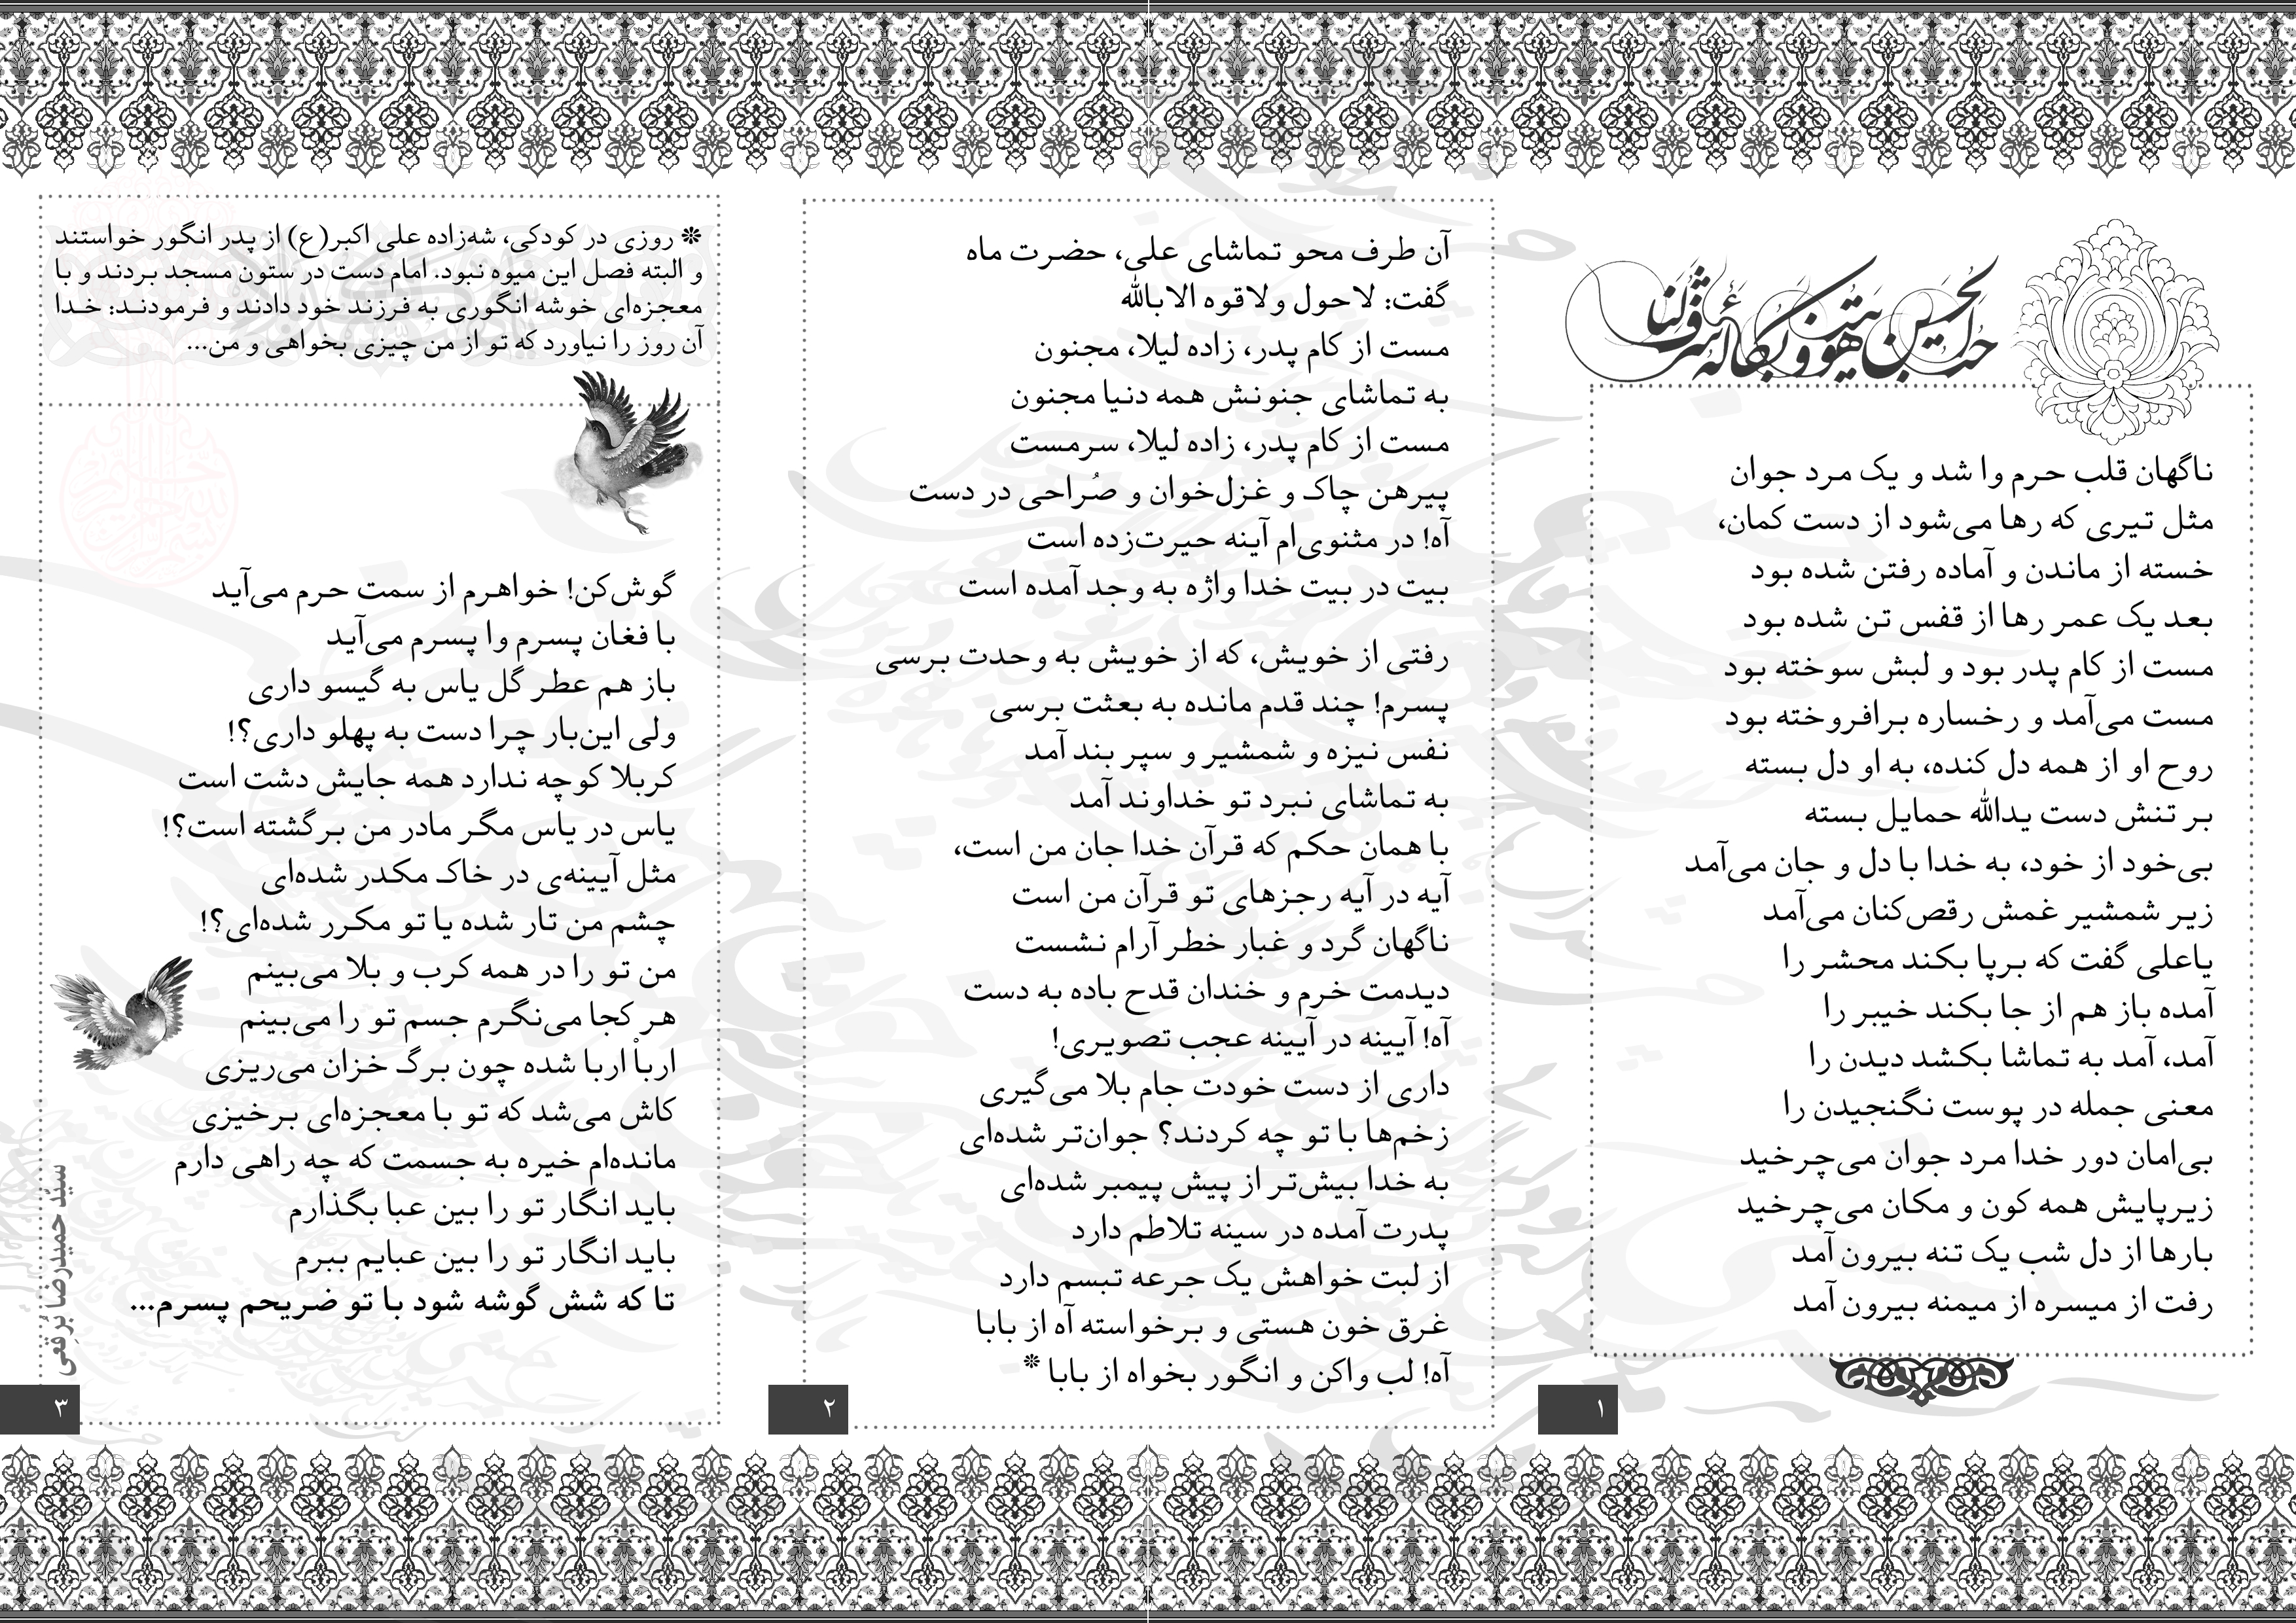 حب الحسین هویتنا و بکائه شرفنا
ناگهان قلب حرم وا شد و یک مرد جوان
مثل تیری که رها می‌شود از دست کمان،
خسته از ماندن و آماده رفتن شده بود
بعد یک عمر رها از قفس تن شده بود
مست از کام پدر بود و لبش سوخته بود
مست می‌آمد و رخساره برافروخته بود
روح او از همه دل کنده، به او دل بسته
بر تنش دست یدالله حمایل بسته
بی‌خود از خود، به خدا با دل و جان می‌آمد
زیر شمشیر غمش رقص‌کنان می‌آمد
یاعلی گفت که برپا بکند محشر را
آمده باز هم از جا بکند خیبر را
آمد، آمد به تماشا بکشد دیدن را
معنی جمله در پوست نگنجیدن را
بی‌امان دور خدا مرد جوان می‌چرخید
زیرپایش همه کون و مکان می‌چرخید
بارها از دل شب یک تنه بیرون آمد
رفت از میسره از میمنه بیرون آمد
۱
آن طرف محو تماشای علی، حضرت ماه
گفت: لاحول ولاقوه الابالله
مست از کام پدر، زاده لیلا، مجنون
به تماشای جنونش همه دنیا مجنون
مست از کام پدر، زاده لیلا، سرمست
پیرهن چاک و غزل‌خوان و صُراحی در دست
آه! در مثنوی‌ام آینه حیرت‌زده است
بیت در بیت خدا واژه به وجد آمده است
رفتی از خویش، که از خویش به وحدت برسی
پسرم! چند قدم مانده به بعثت برسی
نفس نیزه و شمشیر و سپر بند آمد
به تماشای نبرد تو خداوند آمد
با همان حکم که قرآن خدا جان من است،
آیه در آیه رجزهای تو قرآن من است
ناگهان گرد و غبار خطر آرام نشست
دیدمت خرم و خندان قدح باده به دست
آه! آیینه در آیینه عجب تصویری!
داری از دست خودت جام بلا می‌گیری
زخم‌ها با تو چه کردند؟ جوان‌تر شده‌ای
به خدا بیش‌تر از پیش پیمبر شده‌ای
پدرت آمده در سینه تلاطم دارد
از لبت خواهش یک جرعه تبسم دارد
غرق خون هستی و برخواسته آه از بابا
آه! لب واکن و انگور بخواه از بابا *
۲
* روزی در کودکی، شه‌زاده علی اکبر(ع) از پدر انگور خواستند
و البته فصل این میوه نبود. امام دست در ستون مسجد بردند و با
معجزه‌ای خوشه انگوری به فرزند خود دادند و فرمودند: خدا
آن روز را نیاورد که تو از من چیزی بخواهی و من...
گوش‌کن! خواهرم از سمت حرم می‌آید
با فغان پسرم وا پسرم می‌آید
باز هم عطر گل یاس به گیسو داری
ولی این‌بار چرا دست به پهلو داری؟!
کربلا کوچه ندارد همه جایش دشت است
یاس در یاس مگر مادر من برگشته است؟!
مثل آیینه‌ی در خاک مکدر شده‌ای
چشم من تار شده یا تو مکرر شده‌ای؟!
من تو را در همه کرب و بلا می‌بینم
هر کجا می‌نگرم جسم تو را می‌بینم
ارباْ اربا شده چون برگ خزان می‌ریزی
کاش می‌شد که تو با معجزه‌ای برخیزی
مانده‌ام خیره به جسمت که چه راهی دارم
باید انگار تو را بین عبا بگذارم
باید انگار تو را بین عبایم ببرم
تا که شش گوشه شود با تو ضریحم پسرم...
سیّد حمیدرضا بُرقِعی
۳